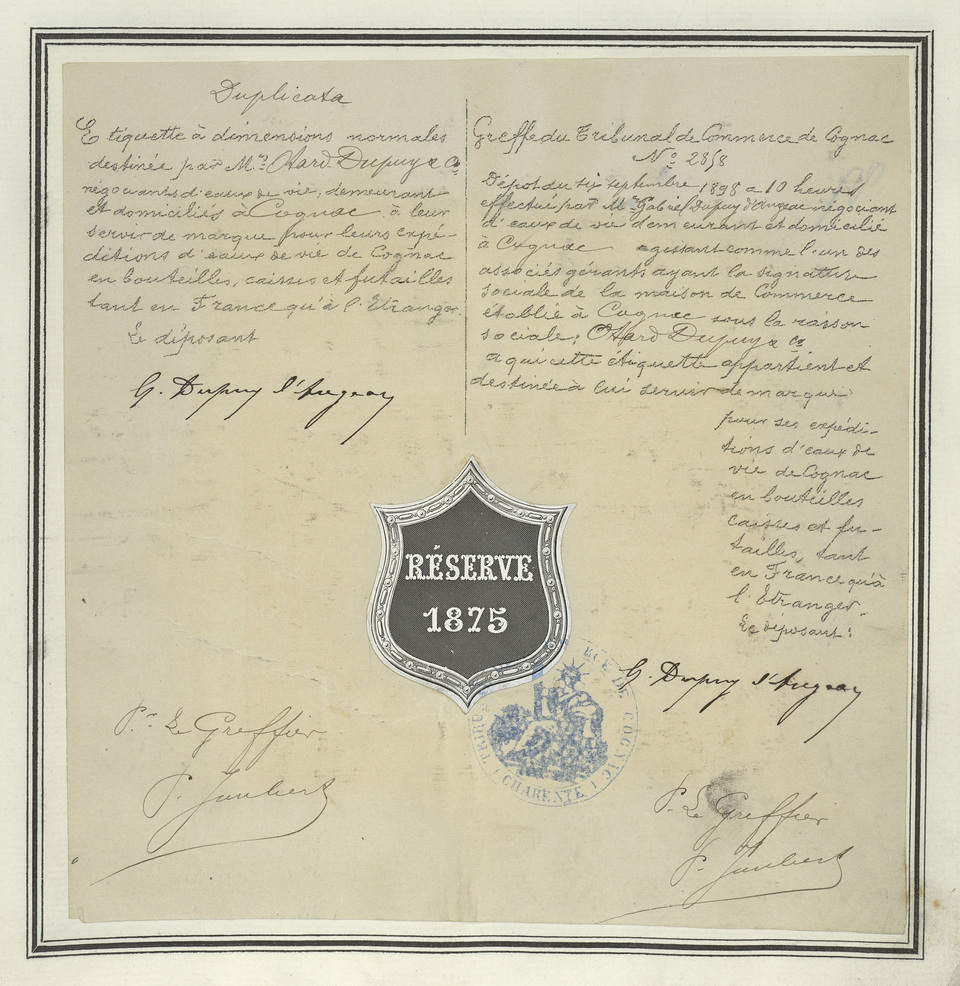 Duplicata
Etiquette à dimensions normales
destinée par Mrs Otard Dupuy & Co
négociants d'eaux de vie, demeurant
et domiciliés à Cognac à leur
servir de marque pour leurs expé-
ditions d'eaux de vie de Cognac
en bouteilles, caisses et futailles
tant en France qu'à l'Etranger.
Le déposant
G. Dupuy d'Angeac
Greffe du Tribunal de Commerce de Cognac
No 2858
Dépôt du six septembre 1898 a 10 heures
effectué par Mr Gabriel Dupuy d'Angeac négociant
d'eaux de vie demeurant et domicilié
à Cognac agissant comme l'un des
associés gérants ayant la signature
sociale de la maison de Commerce
établie à Cognac sous la raison
sociale; Otard Dupuy & Co
a qui cette étiquette appartient et
destinée à lui servir de marque
pour ses expédi-
tions d'eaux de
vie de Cognac
en bouteilles
caisses et fu-
tailles, tant
en France qu'à
l'Etranger.
Le déposant:
G. Dupuy d'Angeac
RÉSERVE
1875
CE DE COGNAC
(CHARENTE)
TRIBU
Pr Le Greffier
P. Joubert
P. Le Greffier
P. Joubert